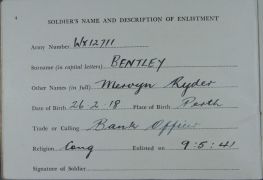 4
SOLDIER'S NAME AND DESCRIPTION OF ENLISTMENT
Army Number WX12711
Surname (in capital letters) BENTLEY
Other Names (in full) Mervyn Ryder
Date of Birth 26-2-18 Place of Birth Perth
Trade or Calling Bank Officer
Religion Cong Enlisted on 9:5:41
Signature of Soldier